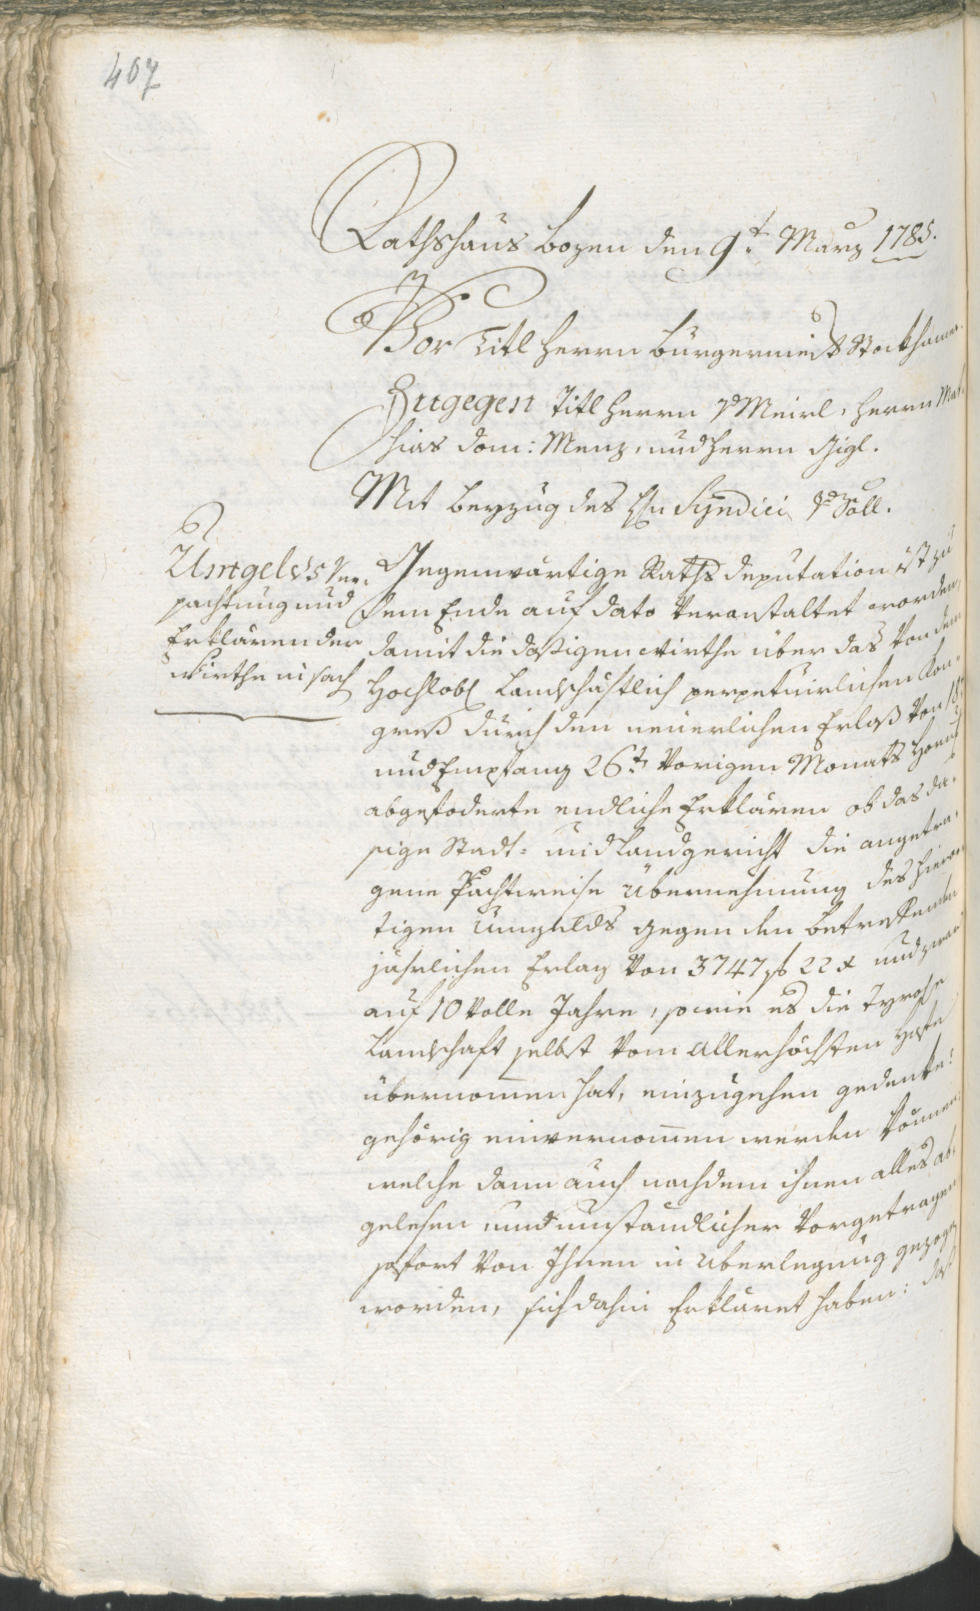 407
Rathshaus Bozen den 9t. Marz 1785.
Vor Titl Herrn Burgermeister Stockhamer
Zugegen Titl Herrn v. Meirl, Herrn Mat-
hias Dom: Menz, und Herrn Gigl.
Mit Beyzug des Hrn Syndici v. Söll.
Umgelds Ver-
pachtung und
Erklären der
Wirthe in sach
Gegenwärtige Raths deputation ist zu
dem Ende auf dato veranstaltet worden,
damit die dasigen wirthe über das von dem
Hochlobl Landschäftlich perpetuirlichen Kon-
greß durch den neuerlichen Erlaß von 18
und Empfang 26t vorigen Monats
abgefoderte endliche Erklären ob das da-
sige Stadt- und Landgericht die angetra-
gene Pachtweise übernehmung des hieror-
tigen Umgelds gegen den betreffenden
jährlichen Erlag von 3747 f 22 x und zwar
auf 10 volle Jahre, sowie es die Tyrolse
Landschaft selbst vom allerhöchsten Hofe
übernommen hat, einzugehen gedenke?
gehörig einvernommen werden können,
welche dann auch nachdem ihnen alles ab-
gelesen und umständlicher vorgetragen
sofort von Ihnen in überlegung gezogen
worden, sich dahin Erkläret haben: daß